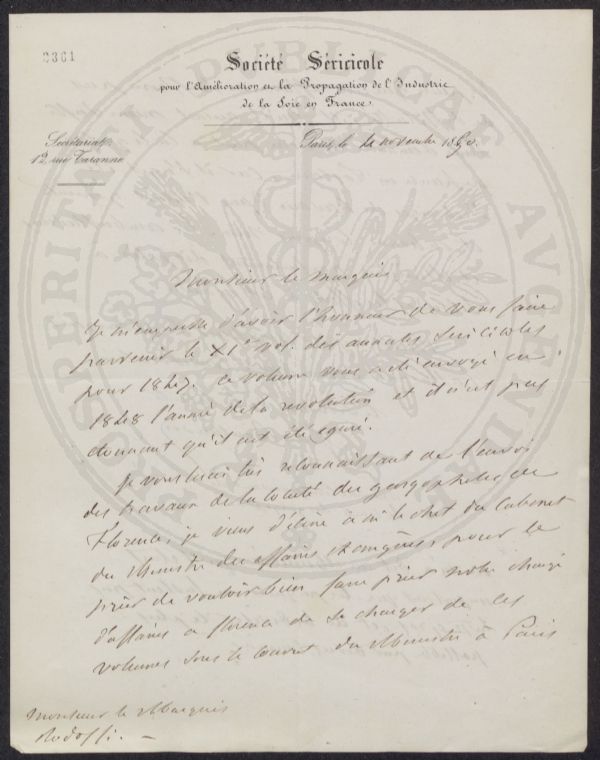 2361
Société Séricicole
pour l'Amélioration et la Propagation de l'Industrie
de la Soie en France.
Secrétariat,
12, rue Taranne
Paris, le novembre 1850.
PROSPERITATI PUBLICAE AUGENDAE
Monsieur le marquis
Je m'empresse d'avoir l'honneur de vous faire
parvenir le XIe vol. des annales séricicoles
pour 1847. ce volume vous a été envoyé en
1848 l'année de la revolution et il n'est pas
étonnant qu'il ait été égaré.
Je vous serai très reconnaissant de l'envoi
des travaux de la société des georgophiles de
Florence, je viens d'écrire à m le chef du Cabinet
du Ministre des affaires étrangères, pour le
prier de vouloir bien faire prier notre chargé
d'affaires a florence de se charger de ces
volumes sous le couvert du Ministre à Paris
Monsieur le Marquis
Ridolfi.